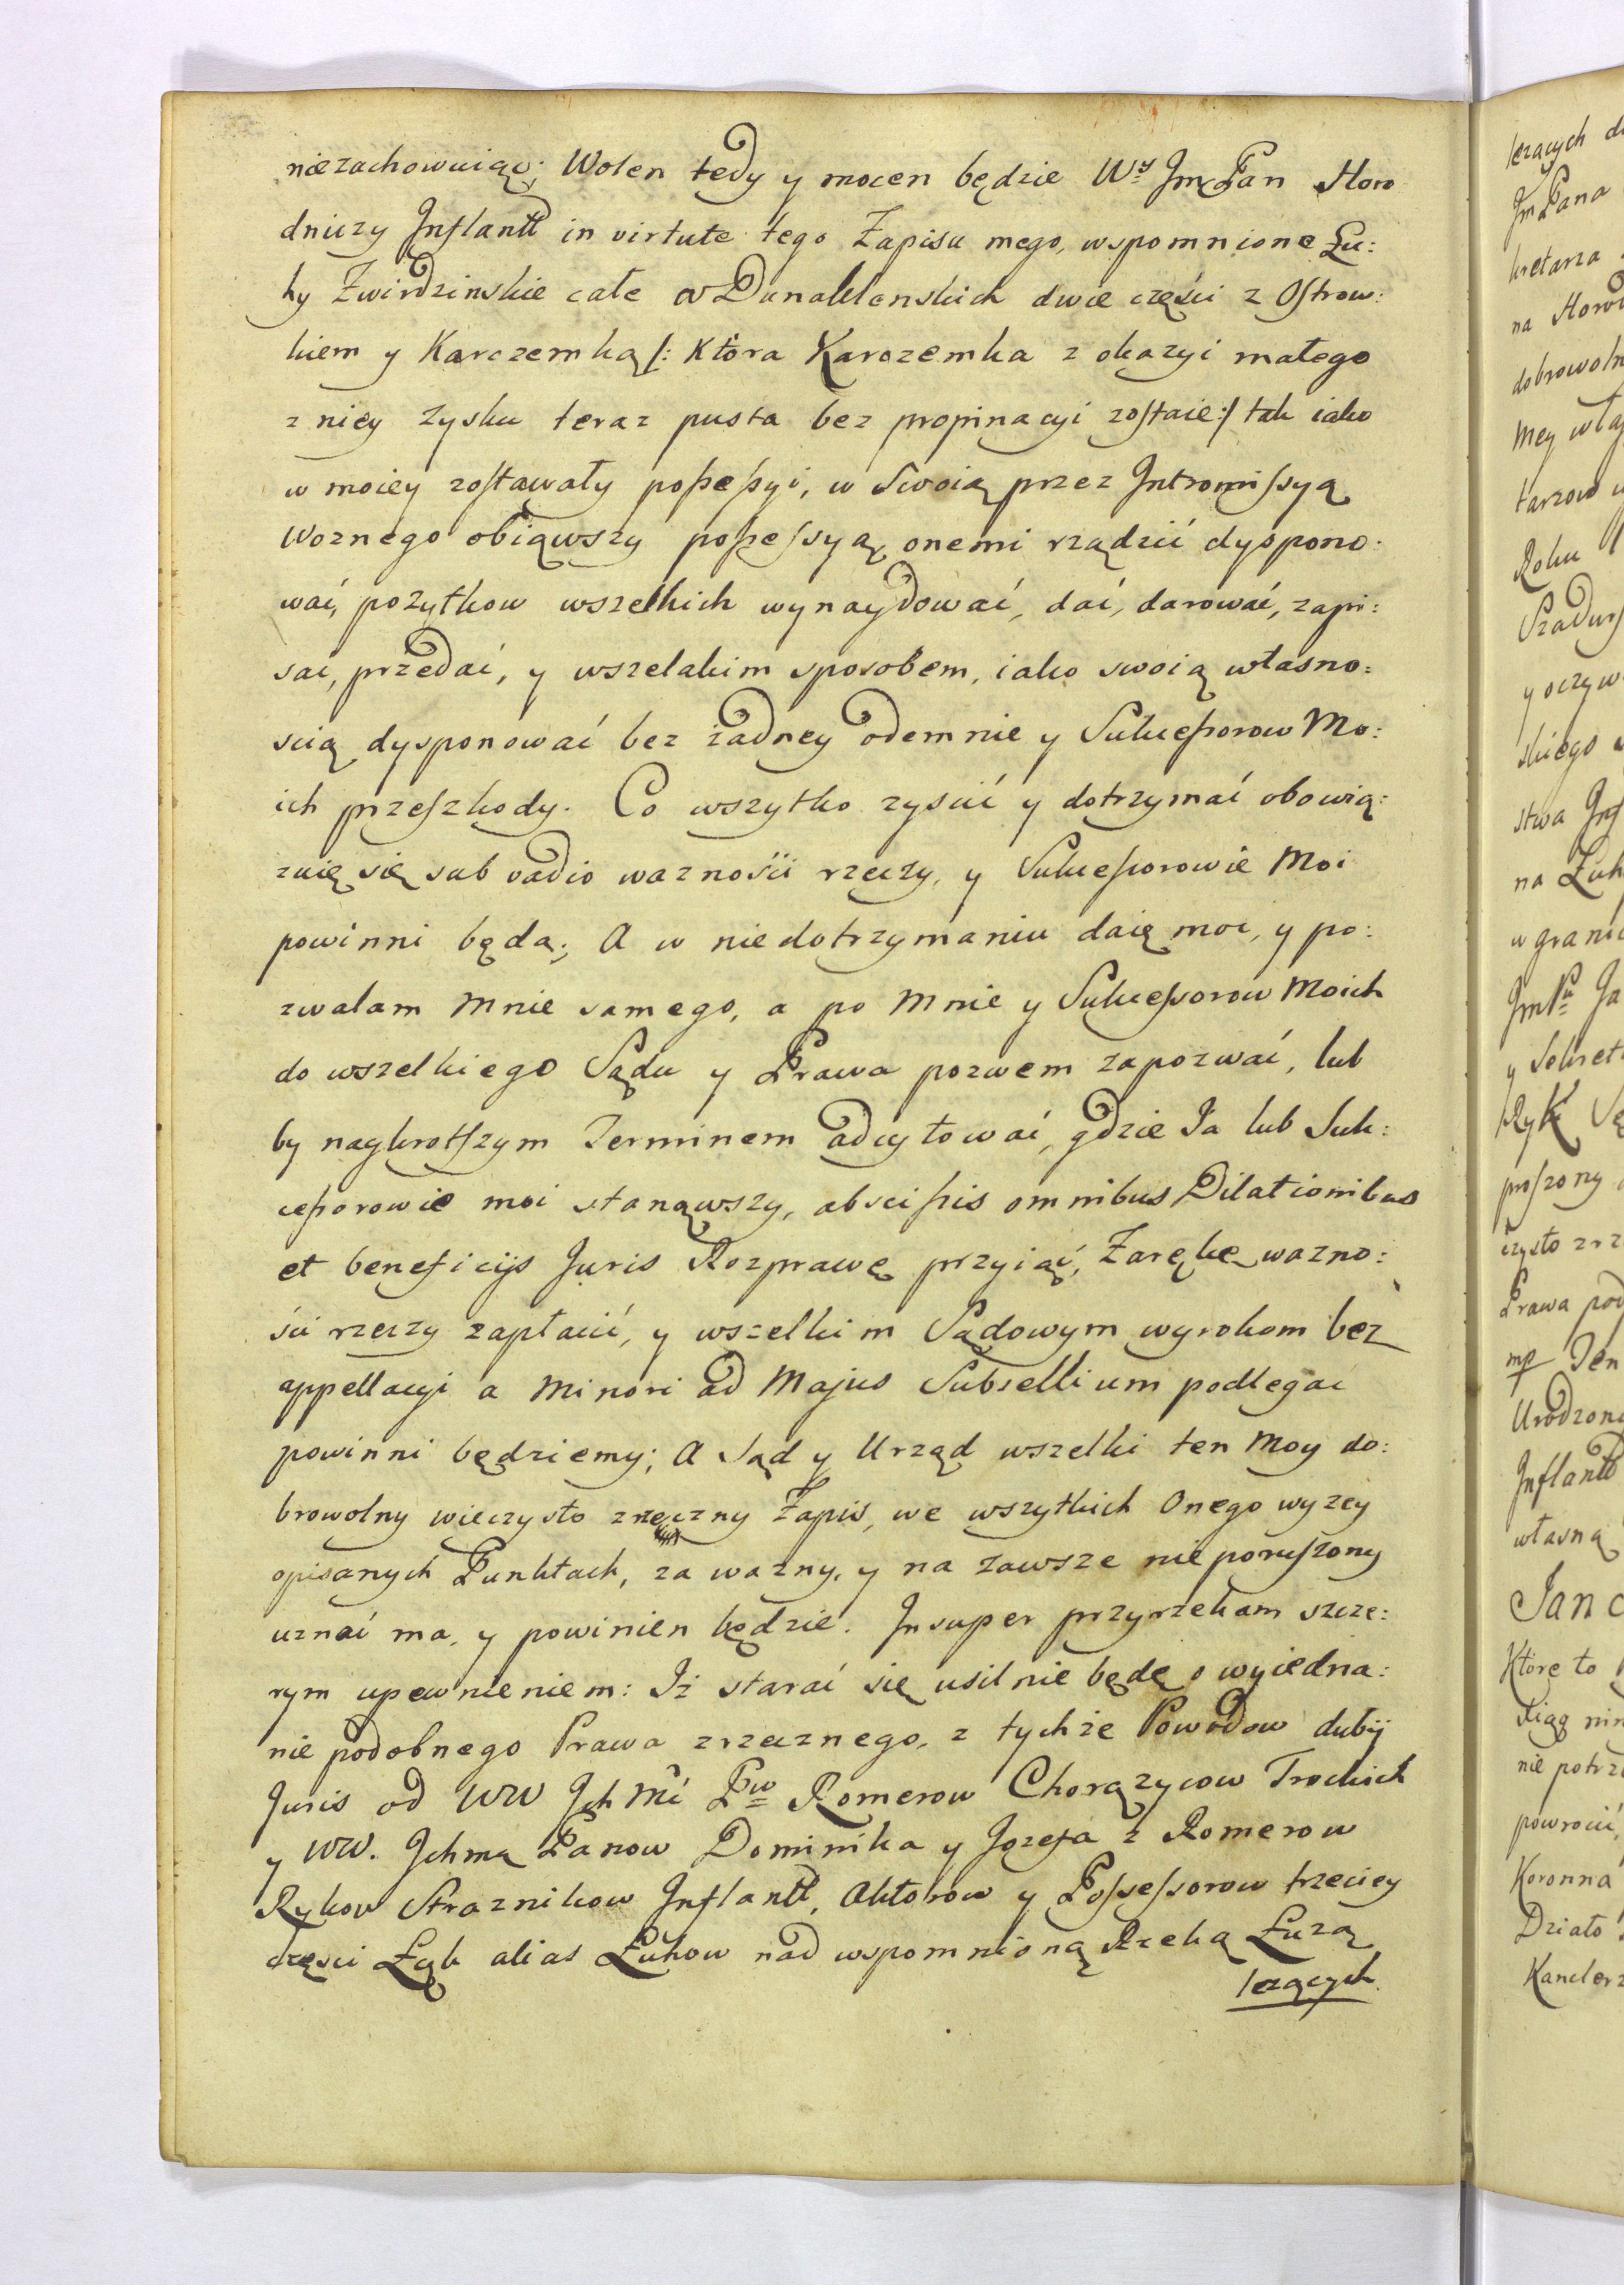 niezachowuiąc; Wolen tedy y mocen będzie Wy JmPan Horo
dniczy Inflantt in virtute tego Zapisu mego, wspomnione Łu:
ky Zwirdzinskie całe a Dunaklenskich dwie częśći z Ostrow:
kiem y Karczemką /: Ktora Karczemka z okazyi małego
z niey zysku teraz pusta bez propinacyi zostaie :/ tak iako
w moiey zostawały possessyi, w Swoią przez Intromissyą
Woznego obiąwszy possessyą, onemi rządzić dyspono:
wać, pożytkow wszelkich wynaydować, dać, darować, zapi:
sać, przedać, y wszelakim sposobem, iako swoią własno:
scią dysponować bez żadney odemnie y Sukcessorow Mo:
ich przeszkody. Co wszytko zyscić y dotrzymać obowią:
zuię się sub vadio ważnośći rzeczy, y Sukcessorowie Moi
powinni będą; A w niedotrzymaniu daię moc, y po:
zwalam Mnie samego, a po Mnie y Sukcessorow Moich
do wszelkiego Sądu y Prawa pozwem zapozwać, lub
by naykrotszym Terminem adcytować, gdzie Ja lub Suk:
cessorowie moi stanąwszy, abscissis omnibus Dilationibus
et beneficijs Juris Rozprawę przyiąć, Zarękę ważno:
śći rzeczy zapłacić, y wszelkim Sądowym wyrokom bez
appellacyi a Minori ad Majus Subsellium podlegać
powinni będziemy; A Sąd y Urząd wszelki ten Moy do:
browolny wieczysto zrzeczny Zapis, we wszytkich Onego wyzey
opisanych Punktach, za ważny, y na zawsze nieporuszony
uznać ma, y powinien będzie. Insuper przyrzekam szcze:
rym upewnieniem: Iż starać się usilnie będę o wyiedna:
nie podobnego Prawa zrzecznego, z tychże Powodow dubij
Juris od WW Ich Mć Pw Romerow Chorązycow Trockich
y WW. Ichmć Panow Dominika y Jozefa z Romerow
Rykow Straznikow Inflantt, Aktorow y Possessorow trzeciey
częsci Łąk alias Łukow nad wspomnioną Rzeką Łużą
lezących.
lezących
JmPana
kretarza
na
dobrowoln
Mey
tarzow
Roku
y oczyw
skiego
stwa Inf
na Łuk
w grani
Jm Pu Ja
y Sekret
proszony
czysto zrz
Prawa pod
mp Ten
Urodzon
Inflantt
własną
Jan
Ktore to
Xiąg nin
nie potrz
powrocić,
Koronna
Działo
Kanclerz